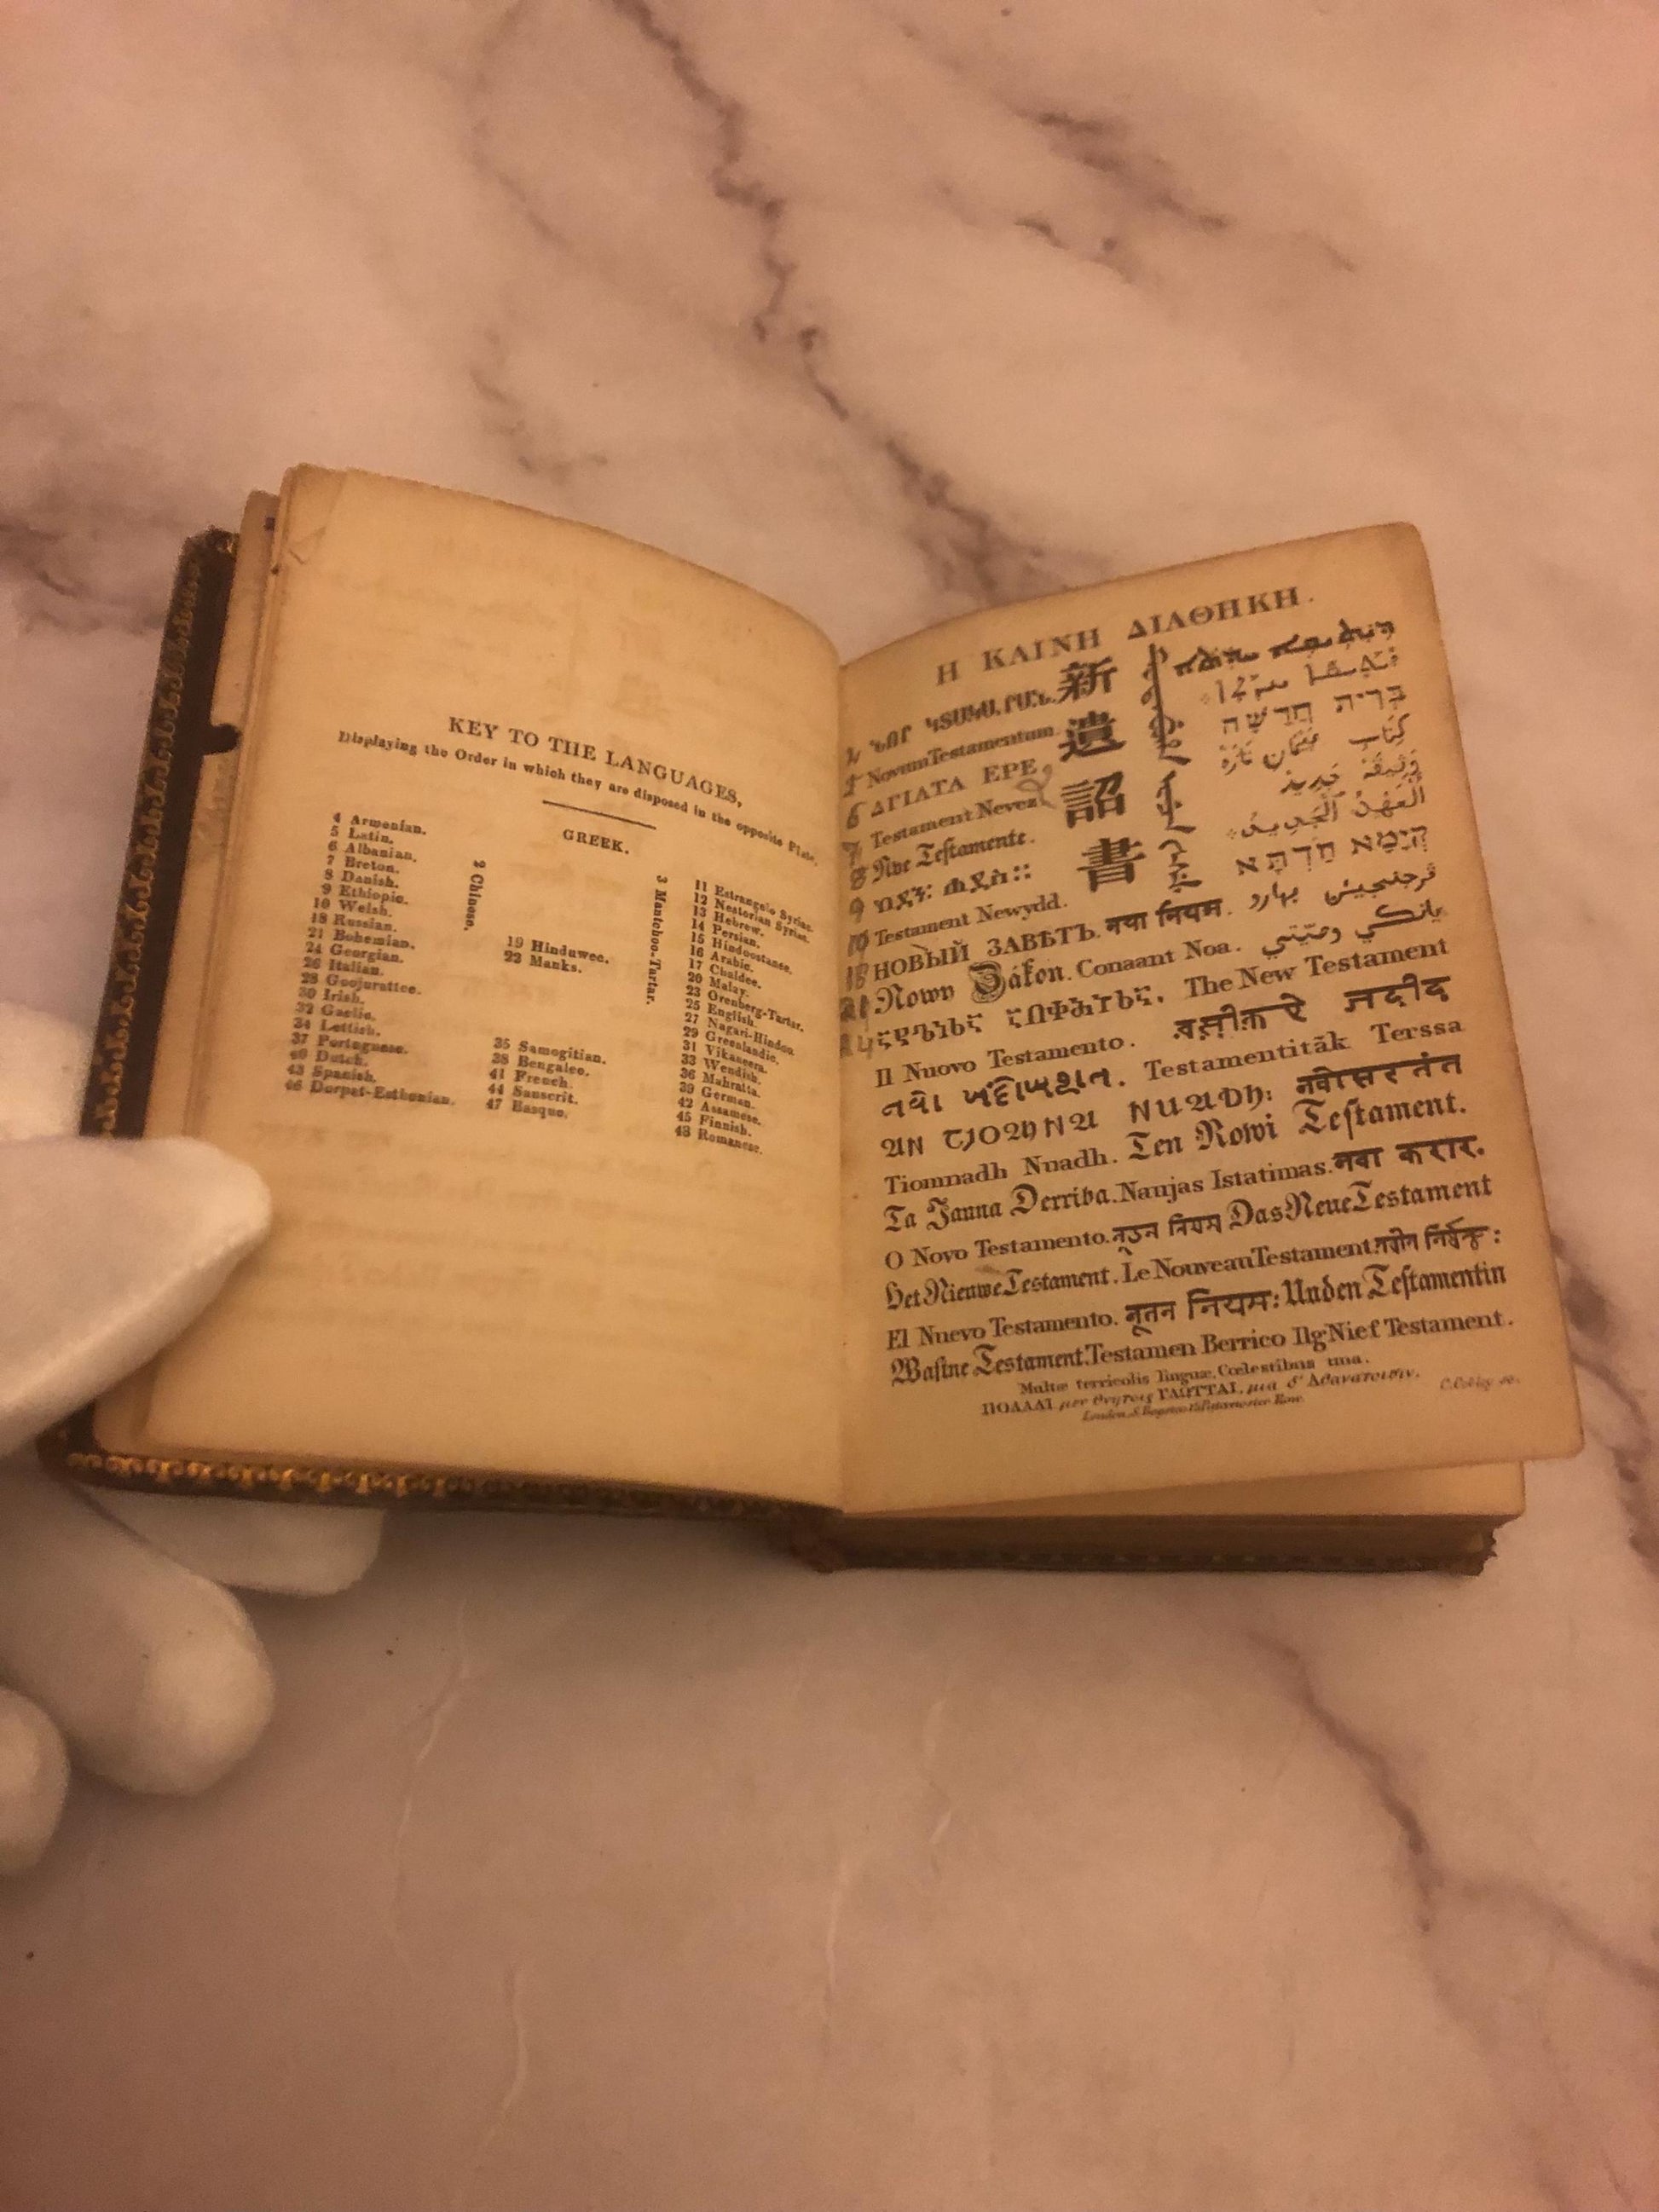 KEY TO THE LANGUAGES,
Displaying the Order in which they are disposed in the opposite Plate.
GREEK.
4 Armenian.
5 Latin.
6 Albanian.
7 Breton.
8 Danish.
9 Ethiopic.
10 Welsh.
18 Russian.
21 Bohemian.
24 Georgian.
26 Italian.
28 Goojurattee.
30 Irish.
32 Gaelic.
34 Lettish.
37 Portuguese.
40 Dutch.
43 Spanish.
46 Dorpat-Esthonian.
2 Chinese.
19 Hinduwee.
22 Manks.
35 Samogitian.
38 Bengalee.
41 French.
44 Sanscrit.
47 Basque.
3 Mantchoo-Tartar.
11 Estrangelo Syriac.
12 Nestorian Syriac.
13 Hebrew.
14 Persian.
15 Hindoostanee.
16 Arabic.
17 Chaldee.
20 Malay.
23 Orenberg-Tartar.
25 English.
27 Nagari-Hindoo.
29 Greenlandic.
31 Vikaneera.
33 Wendish.
36 Mahratta.
39 German.
42 Assamese.
45 Finnish.
48 Romanese.
Η ΚΑΙΝΗ ΔΙΑΘΗΚΗ.
新遺詔書
5 Novum Testamentum.
6 ΔΓΙΑΤΑ ΕΡΕ
7 Testament Nevez
8 Nye Testamente.
9 ሀዲስ፡
10 Testament Newydd. नया नियम.
ברית חדשה
18 НОВЫЙ ЗАВѢТЪ. Conaant Noa.
21 Nowy Zákon. The New Testament
24
Il Nuovo Testamento.
Testamentitâk Terssa
Tiomnadh Nuadh. Ten Nowi Testament.
Ta Jauna Derriba. Naujas Istatimas. नवा करार.
O Novo Testamento. नूतन नियम Das Neue Testament
Het Nieuwe Testament. Le Nouveau Testament.
El Nuevo Testamento. नूतन नियम: Uuden Testamentin
Wastne Testament. Testamen Berrico Ilg Nief Testament.
Multæ terricolis linguæ, Cœlestibus una.
ΠΟΛΛΑΙ μεν θνητοις ΓΛΩΤΤΑΙ, μια δ' Αθανατοισιν.
London, S. Bagster, 15 Paternoster Row.